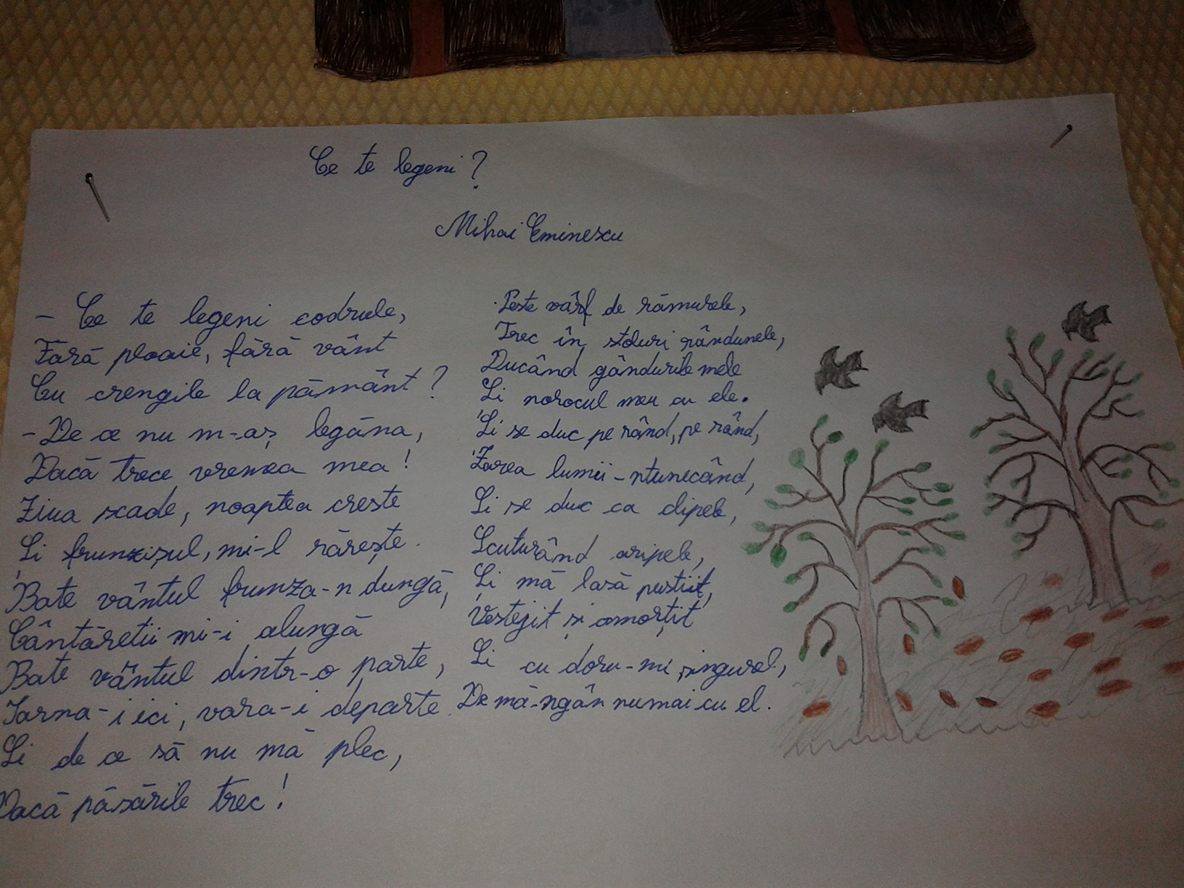 Ce te legeni?
Mihai Eminescu
- Ce te legeni codrule,
Fără ploaie, fără vânt
Cu crengile la pământ?
- De ce nu m-aș legăna,
Dacă trece vremea mea!
Ziua scade, noaptea crește
Și frunzișul, mi-l rărește.
Bate vântul frunza-n dungă,
Cântăreții mi-i alungă
Bate vântul dintr-o parte,
Iarna-i ici, vara-i departe.
Și de ce să nu mă plec,
Dacă păsările trec!
Peste vârf de rămurele,
Trec în stoluri rândunele,
Ducând gândurile mele
Și norocul meu cu ele.
Și se duc pe rând, pe rând,
Zarea lumii-ntunecând,
Și se duc ca clipele,
Scuturând aripele,
Și mă lasă pustiit,
Veștejit și amorțit
Și cu doru-mi singurel,
De mă-ngân numai cu el.